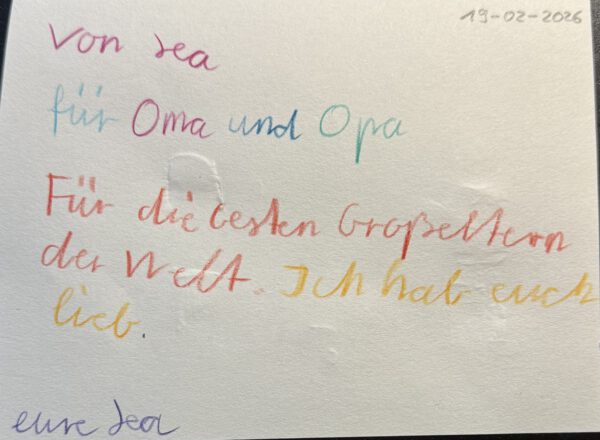 19-02-2026
Von Lea
für Oma und Opa
Für die besten Großeltern
der Welt. Ich hab euch
lieb.
eure Lea